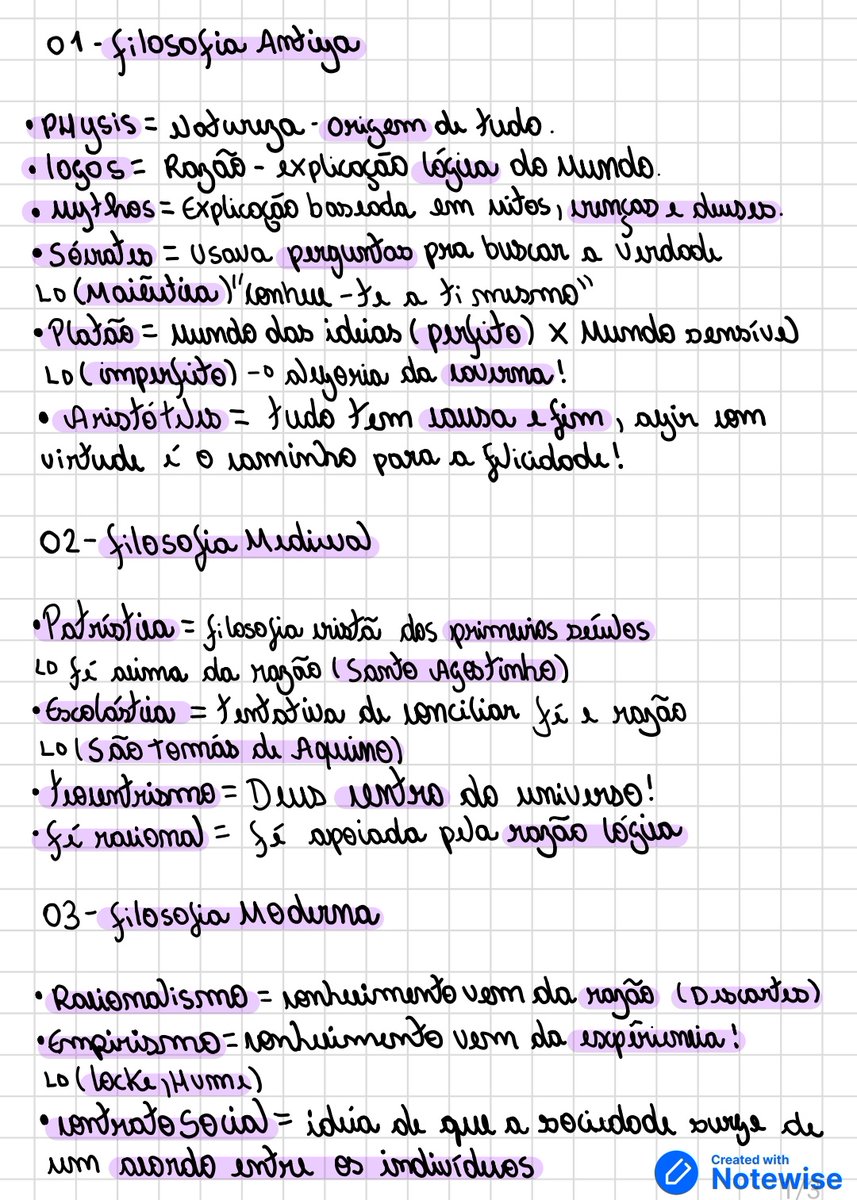 01 - filosofia Antiga
• PHysis = Natureza - origem de tudo.
• logos = Razão - explicação lógica do Mundo.
• Mythos = Explicação baseada em mitos, crenças e deuses.
• Sócrates = Usava perguntas pra buscar a Verdade
↳ (Maiêutica) "conhece-te a ti mesmo"
• Platão = Mundo das ideias (perfeito) x Mundo sensível
↳ (imperfeito) → alegoria da caverna!
• Aristóteles = tudo tem causa e fim, agir com
virtude é o caminho para a felicidade!
02 - filosofia Medieval
• Patrística = filosofia cristã dos primeiros séculos
↳ fé acima da razão (Santo Agostinho)
• Escolástica = tentativa de conciliar fé e razão
↳ (São tomás de Aquino)
• teocentrismo = Deus centro do universo!
• fé racional = fé apoiada pela razão lógica
03 - filosofia Moderna
• Racionalismo = conhecimento vem da razão (Descartes)
• Empirismo = conhecimento vem da expêriencia!
↳ (locke, Hume)
• contrato Social = ideia de que a sociedade surge de
um acordo entre os indivíduos
Created with
Notewise
1/3